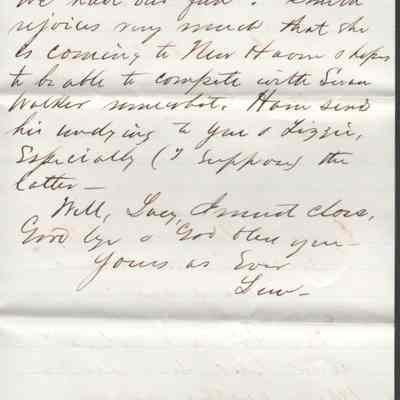 we have our fun.
rejoices very much that she
is coming to New Haven & hopes
to be able to compete with
Walker somewhat. Ham sends
his undying to you & Lizzie,
Especially (I suppose) the
latter—
Well, Lucy, I must close,
Good bye & God bless you—
Yours as Ever
Lew—